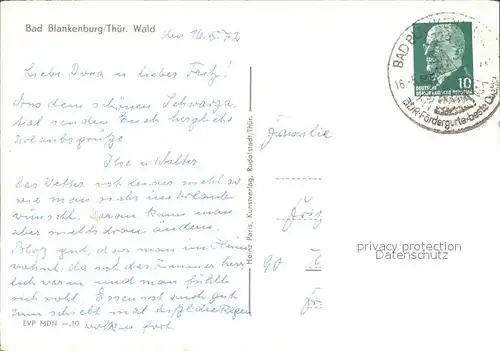 Bad Blankenburg/Thür. Wald
den 16.5.72
Liebe Dora u lieber Fritz!
Aus dem schönen Schwarza
tal senden Euch herzliche
Urlaubsgrüße
Ilse u Walter
Das Wetter ist leider nicht so
wie man sich's im Urlaub
wünscht. Daran kann man
aber nichts dran ändern.
gut, das man im Heim
wohnt, da ist das Zimmer herr
lich warm und man fühlt
sich wohl. Essen ist auch gut
zum schluß die Regen
wolken fort
EVP MDN —.10
Heinz Paris, Kunstverlag, Rudolstadt/Thür.
BAD BLANKENBURG
16.5.
DEUTSCHE
DEMOKRATISCHE REPUBLIK
10
BDK-Fördergurte-beste
Familie
privacy protection
Datenschutz